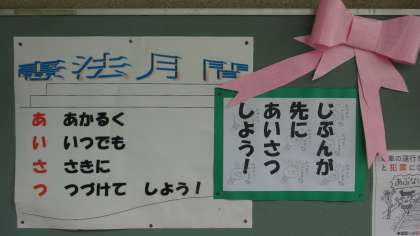 憲法月間
あ あかるく
い いつでも
さ さきに
つ つづけて しよう！
じぶんが
先に
あいさつ
しよう！